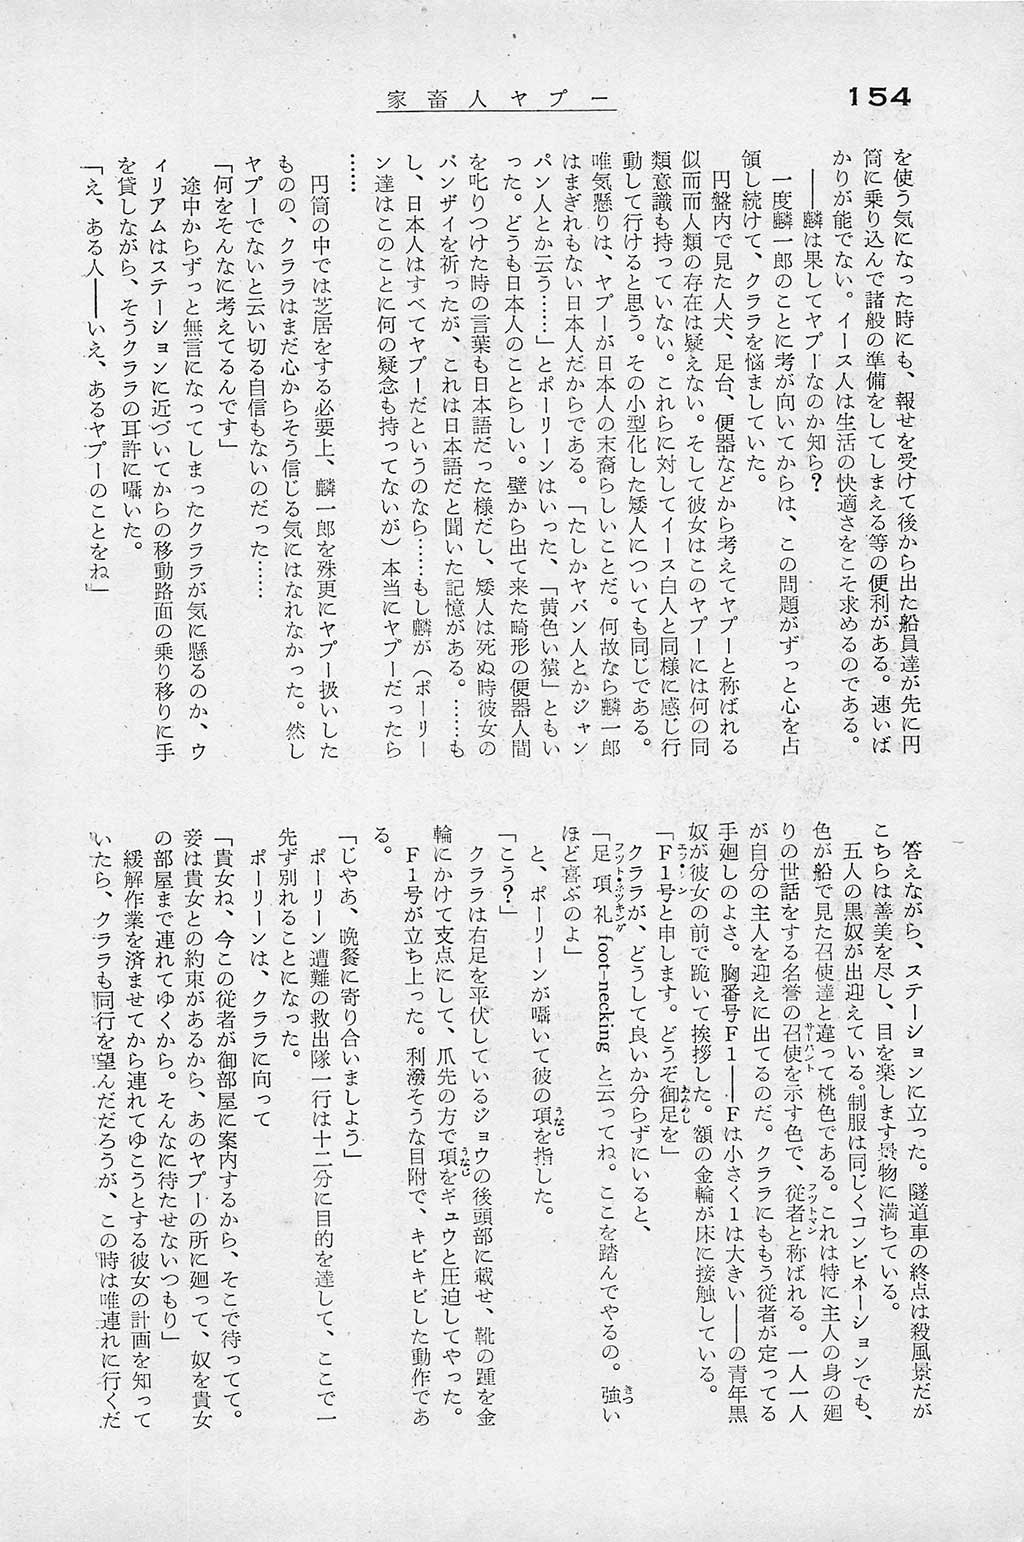 154
家畜人ヤプー
を使う気になった時にも、報せを受けて後から出た船員達が先に円
筒に乗り込んで諸般の準備をしてしまえる等の便利がある。速いば
かりが能でない。イース人は生活の快適さをこそ求めるのである。
――麟は果してヤプーなのか知ら？
一度麟一郎のことに考が向いてからは、この問題がずっと心を占
領し続けて、クララを悩ましていた。
円盤内で見た人犬、足台、便器などから考えてヤプーと称ばれる
似而而人類の存在は疑えない。そして彼女はこのヤプーには何の同
類意識も持っていない。これらに対してイース白人と同様に感じ行
動して行けると思う。その小型化した矮人についても同じである。
唯気懸りは、ヤプーが日本人の末裔らしいことだ。何故なら麟一郎
はまぎれもない日本人だからである。「たしかヤバン人とかジャン
パン人とか云う……」とポーリーンはいった、「黄色い猿」ともい
った。どうも日本人のことらしい。壁から出て来た畸形の便器人間
を叱りつけた時の言葉も日本語だった様だし、矮人は死ぬ時彼女の
バンザイを祈ったが、これは日本語だと聞いた記憶がある。……も
し、日本人はすべてヤプーだというのなら……もし麟が（ポーリー
ン達はこのことに何の疑念も持ってないが）本当にヤプーだったら
……
円筒の中では芝居をする必要上、麟一郎を殊更にヤプー扱いした
ものの、クララはまだ心からそう信じる気にはなれなかった。然し
ヤプーでないと云い切る自信もないのだった……
「何をそんなに考えてるんです」
途中からずっと無言になってしまったクララが気に懸るのか、ウ
ィリアムはステーションに近づいてからの移動路面の乗り移りに手
を貸しながら、そうクララの耳許に囁いた。
「え、ある人――いえ、あるヤプーのことをね」
答えながら、ステーションに立った。隧道車の終点は殺風景だが
こちらは善美を尽し、目を楽します景物に満ちている。
五人の黒奴が出迎えている。制服は同じくコンビネーションでも、
色が船で見た召使達と違って桃色である。これは特に主人の身の廻
りの世話をする名誉の召使サーバントを示す色で、従者フットマンと称ばれる。一人一人
が自分の主人を迎えに出てるのだ。クララにももう従者が定ってる
手廻しのよさ。胸番号F1――Fは小さく1は大きい――の青年黒
奴が彼女の前で跪いて挨拶した。額の金輪が床に接触している。
「F1号エフ・ワンと申します。どうぞ御足おみあしを」
クララが、どうして良いか分らずにいると、
「足項礼フット・ネッキング foot-necking と云ってね。ここを踏んでやるの。強きつい
ほど喜ぶのよ」
と、ポーリーンが囁いて彼の項うなじを指した。
「こう？」
クララは右足を平伏しているジョウの後頭部に載せ、靴の踵を金
輪にかけて支点にして、爪先の方で項うなじをギュウと圧迫してやった。
F1号が立ち上った。利潑そうな目附で、キビキビした動作であ
る。
「じゃあ、晩餐に寄り合いましよう」
ポーリーン遭難の救出隊一行は十二分に目的を達して、ここで一
先ず別れることになった。
ポーリーンは、クララに向って
「貴女ね、今この従者が御部屋に案内するから、そこで待ってて。
妾は貴女との約束があるから、あのヤプーの所に廻って、奴を貴女
の部屋まで連れてゆくから。そんなに待たせないつもり」
緩解作業を済ませてから連れてゆこうとする彼女の計画を知って
いたら、クララも同行を望んだだろうが、この時は唯連れに行くだ